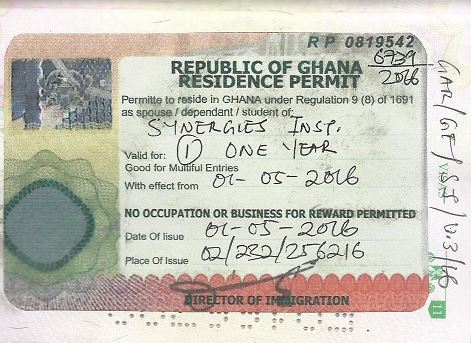 RP 0819542
6739
2016
REPUBLIC OF GHANA
RESIDENCE PERMIT
Permitte to reside in GHANA under Regulation 9 (8) of 1691
as spouse / dependant / student of:
SYNERGIES INSP.
Valid for: (1) ONE YEAR
Good for Multiful Entries
With effect from 01-05-2016
NO OCCUPATION OR BUSINESS FOR REWARD PERMITTED
Date Of Issue 01-05-2016
Place Of Issue 02/232/256216
DIRECTOR OF IMMIGRATION
11